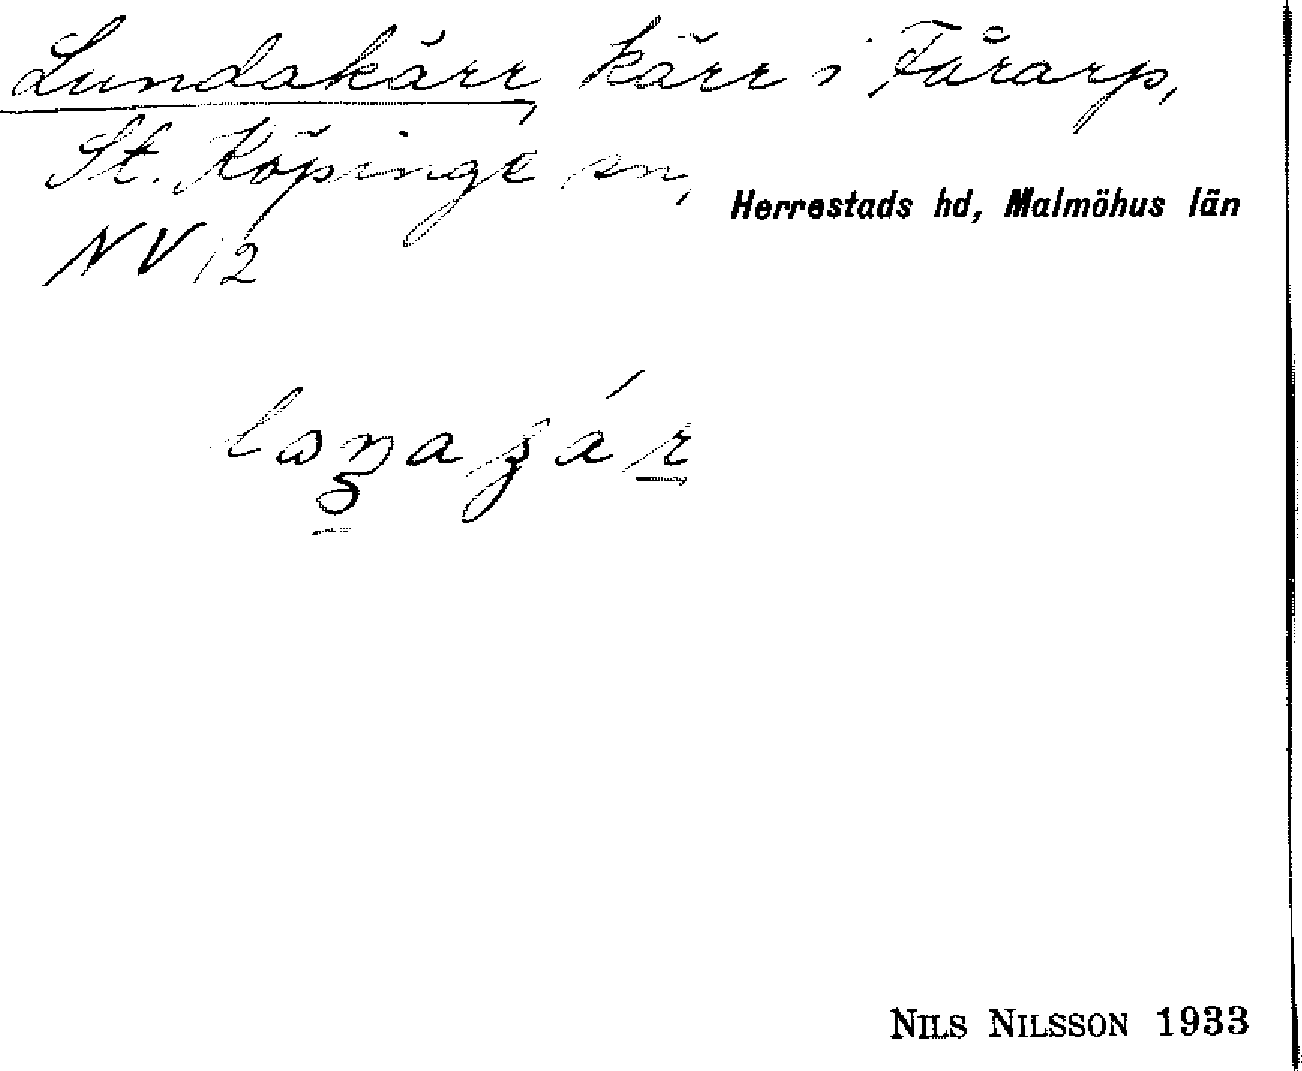 Lundakärr, kärr i Fårarp,
St. Köpinge sn,
Herrestads hd, Malmöhus län
NV 12
NILS NILSSON 1933